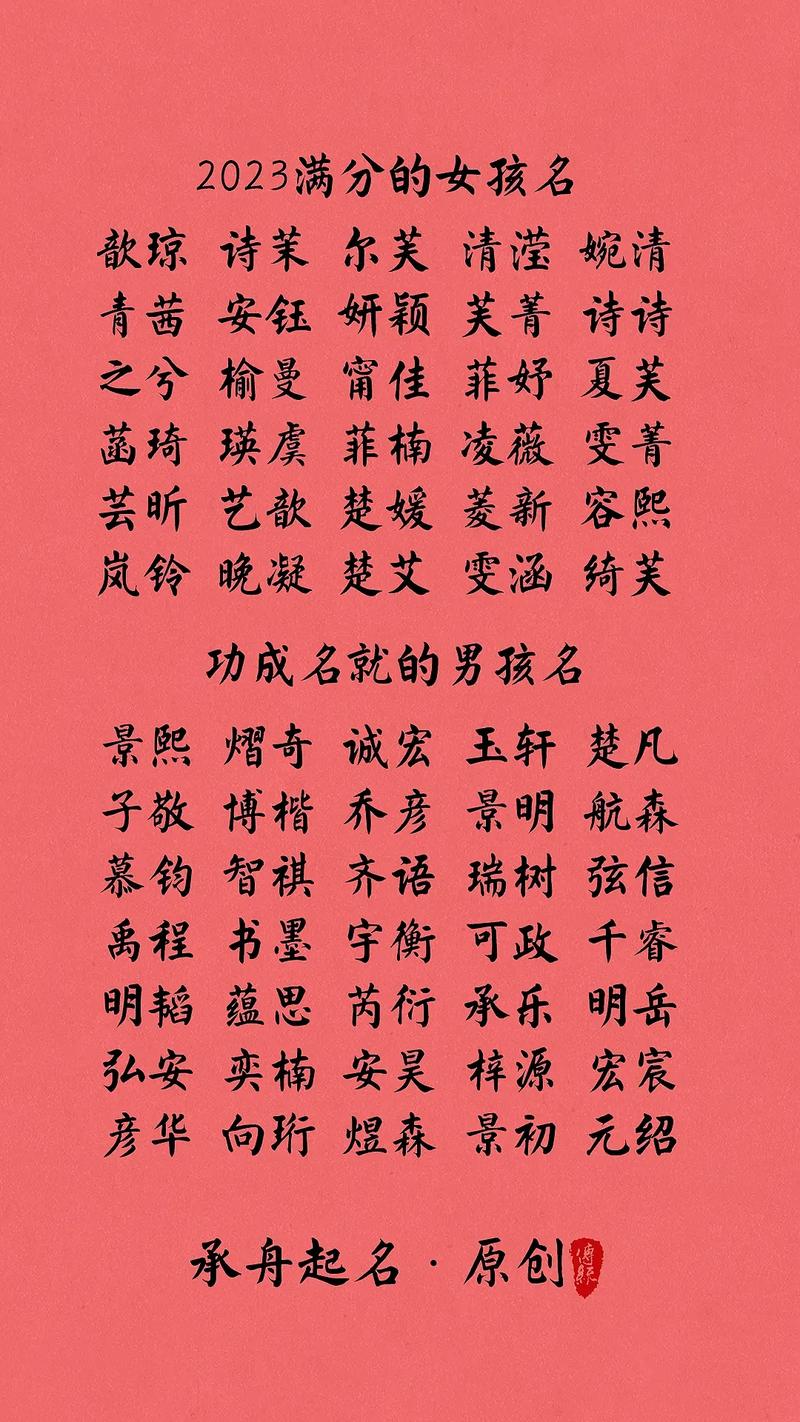 2023满分的女孩名
歆琼 诗茉 尔芙 清滢 婉清
青茜 安钰 妍颖 芙菁 诗诗
之兮 榆曼 甯佳 菲妤 夏芙
菡琦 瑛虞 菲楠 凌薇 雯菁
芸昕 艺歆 楚媛 菱新 容熙
岚铃 晚凝 楚艾 雯涵 绮芙
功成名就的男孩名
景熙 熠奇 诚宏 玉轩 楚凡
子敬 博楷 乔彦 景明 航森
慕钧 智祺 齐语 瑞树 弦信
禹程 书墨 宇衡 可政 千睿
明韬 蕴思 芮衍 承乐 明岳
弘安 奕楠 安昊 梓源 宏宸
彦华 向珩 煜森 景初 元绍
承舟起名·原创
傳統